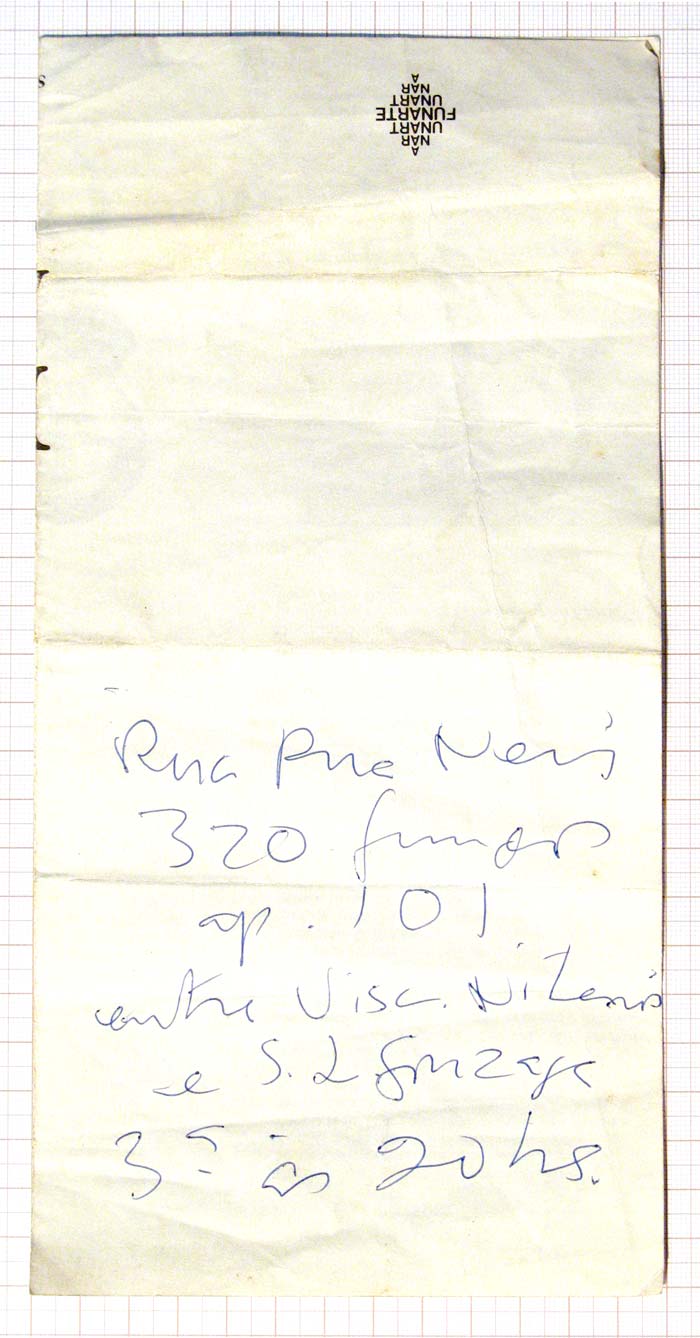 A
NAR
UNART
FUNARTE
UNART
NAR
A
Rua Ana Neri
320 fundos
ap. 101
entre Visc. Niterói
e S. L Gonzaga
3ª às 20hs.